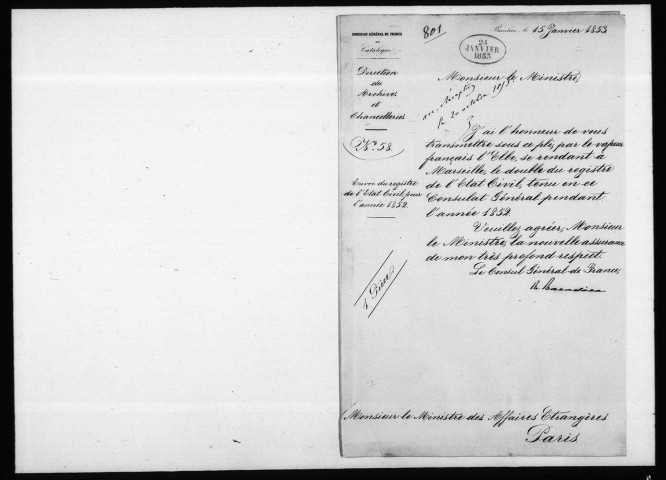 CONSULAT GÉNÉRAL DE FRANCE
en
Catalogne
Direction
des
Archives
et
Chancelleries
N.º 58.
Envoi du registre
de l'Etat Civil, pour
l'année 1852.
1 Pièce
801
le 15 Janvier 1853
24
JANVIER
1853
Monsieur le Ministre,
J'ai l'honneur de vous
transmettre sous ce pli, par le vapeur
français l'Elbe, se rendant à
Marseille, le double du registre
de l'Etat Civil, tenu en ce
Consulat Général pendant
l'année 1852.
Veuillez agréer, Monsieur
le Ministre, la nouvelle assurance
de mon très profond respect.
Le Consul Général de France,
Monsieur le Ministre des Affaires Etrangères
Paris